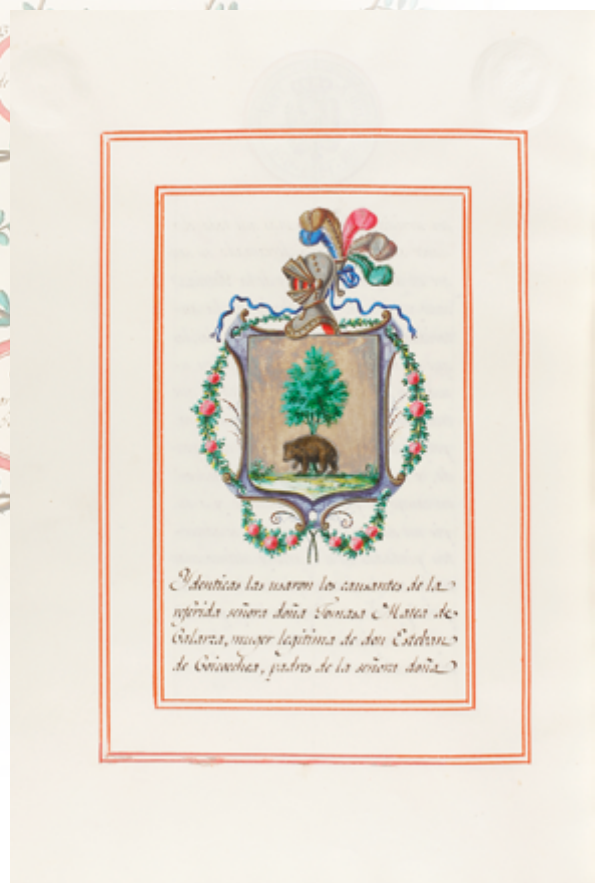 Ydenticas las usaron los causantes de la
referida señora doña Tomasa Matea de
Galarza, muger legitima de don Esteban
de Goicoechea, padres de la señora doña